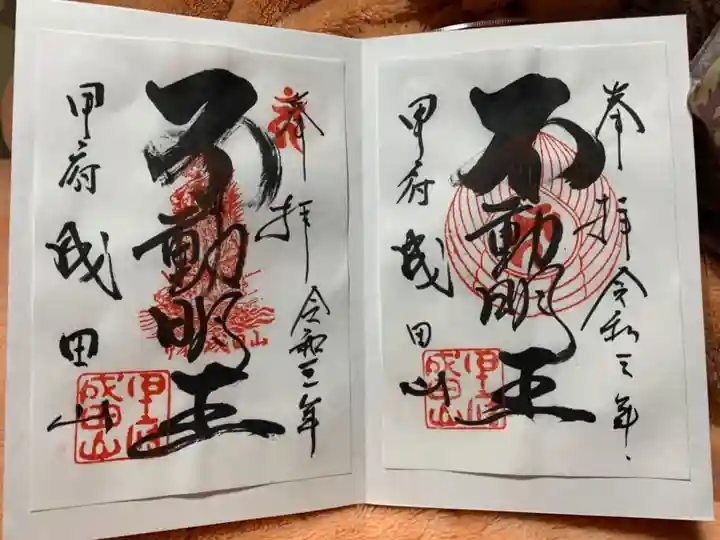 奉拝 令和三年
不動明王
甲府 成田山
甲府成田山
奉拝 令和三年
不動明王
甲府 成田山
甲府成田山